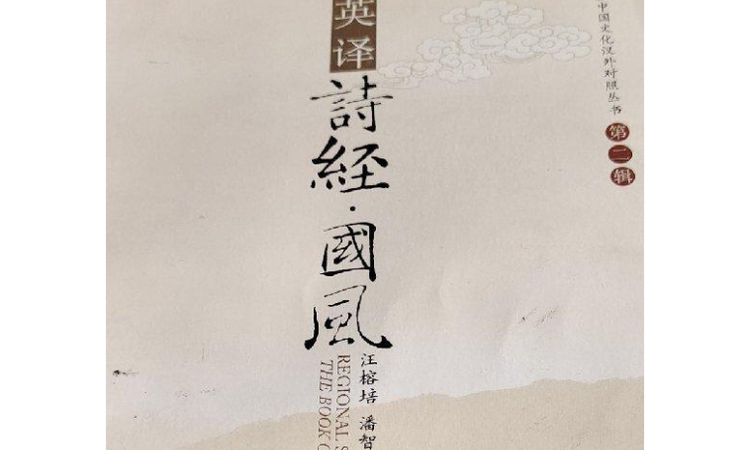 中国文化汉外对照丛书
第二辑
英译
詩経·國風
汪榕培 潘智
REGIONAL S
THE BOOK O